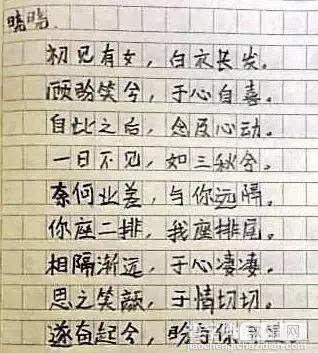 晓晓.
初见有女，白衣长发。
顾盼笑兮，于心自喜。
自此之后，念及心动。
一日不见，如三秋兮。
奈何业差，与你远隔。
你座二排，我座排尾。
相隔渐远，于心凄凄。
思之笑颜，于情切切。
遂奋起兮，盼与你
jiaocheng.chazidian.com